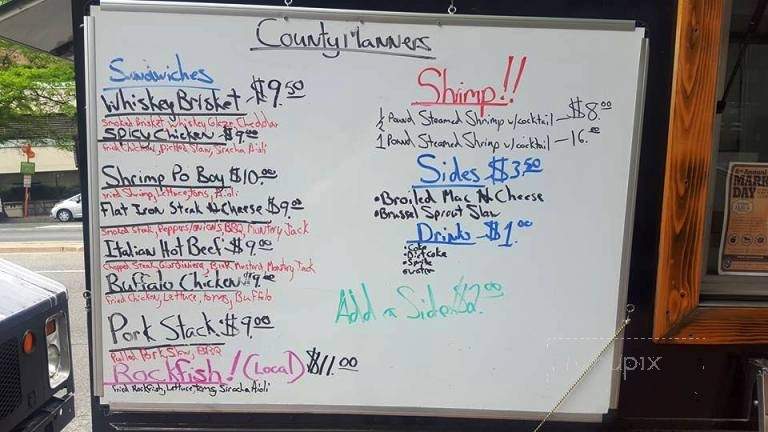 County Manners
Sandwiches
Whiskey Brisket $9.50
Smoked Brisket, Whiskey Glaze, Cheddar
Spicy Chicken $9.00
Fried Chicken, Pickled Slaw, Siracha Aioli
Shrimp Po Boy $10.00
Fried Shrimp, Lettuce, toms, Aioli
Flat Iron Steak N Cheese $9.00
Smoked Steak, Peppers/onions, BBQ, Montery Jack
Italian Hot Beef $9.00
Chopped Steak, Giardiniera, Mustard, Montery Jack
Buffalo Chicken $9.00
Fried Chicken, Lettuce, toms, Buffalo
Pork Stack $9.00
Pulled Pork, Slaw, BBQ
Rockfish! (Local) $11.00
Fried Rockfish, Lettuce, toms, Siracha Aioli
Shrimp!!
½ Pound Steamed Shrimp w/cocktail - $8.00
1 Pound Steamed Shrimp w/cocktail - 16.00
Sides $3.50
• Broiled Mac N Cheese
• Brussel Sprout Slaw
Drinks $1.00
• Coke
• Diet Coke
• Sprite
• water
Add a Side $2.00
6th Annual
MARK
DAY